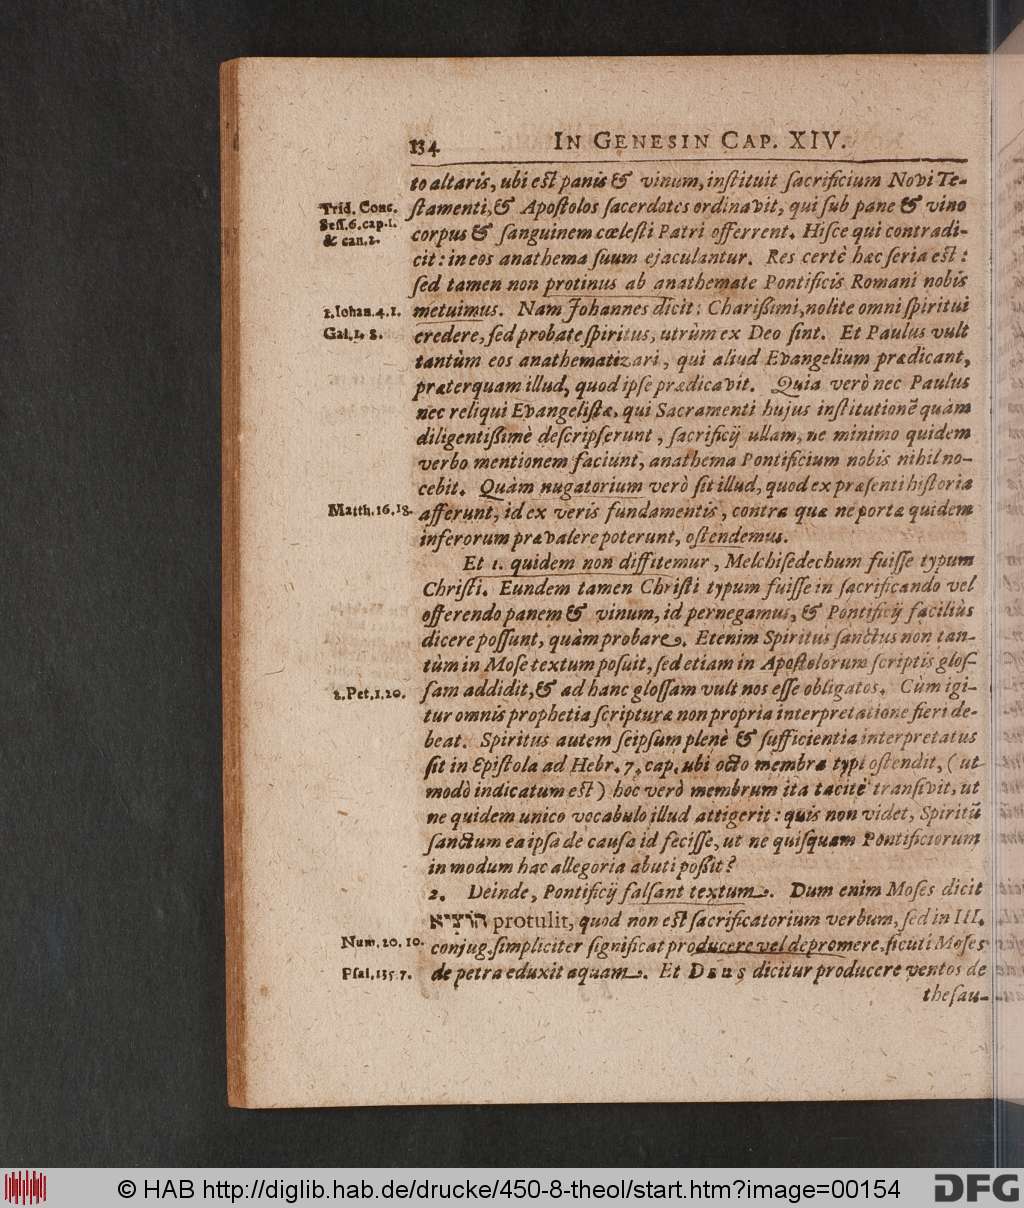 134 IN GENESIN CAP. XIV.
to altaris, ubi est panis & vinum, instituit sacrificium Novi Te-
Trid. Conc. stamenti, & Apostolos sacerdotes ordinavit, qui sub pane & vino
Sess. 6. cap. 1.
& can. 2. corpus & sanguinem cœlesti Patri offerrent. Hisce qui contradi-
cit: in eos anathema suum ejaculantur. Res certè hæc seria est:
sed tamen non protinus ab anathemate Pontificis Romani nobis
1. Iohan. 4. 1. metuimus. Nam Johannes dicit: Charißimi, nolite omni spiritui
Gal. 1. 8. credere, sed probate spiritus, utrùm ex Deo sint. Et Paulus vult
tantùm eos anathematizari, qui aliud Evangelium prædicant,
præterquam illud, quod ipse prædicavit. Quia verò nec Paulus
nec reliqui Evangelistæ, qui Sacramenti hujus institutionē quàm
diligentißimè descripserunt, sacrificij ullam, ne minimo quidem
verbo mentionem faciunt, anathema Pontificium nobis nihil no-
cebit. Quàm nugatorium verò sit illud, quod ex præsenti historia
Matth. 16. 18. afferunt, id ex veris fundamentis, contra quæ ne portæ quidem
inferorum prævalere poterunt, ostendemus.
Et 1. quidem non diffitemur, Melchisedechum fuisse typum
Christi. Eundem tamen Christi typum fuisse in sacrificando vel
offerendo panem & vinum, id pernegamus, & Pontificij faciliùs
dicere possunt, quàm probare. Etenim Spiritus sanctus non tan-
tùm in Mose textum posuit, sed etiam in Apostolorum scriptis glos-
2. Pet. 1. 20. sam addidit, & ad hanc glossam vult nos esse obligatos. Cùm igi-
tur omnis prophetia scripturæ non propria interpretatione fieri de-
beat. Spiritus autem seipsum plenè & sufficientia interpretatus
sit in Epistola ad Hebr. 7. cap. ubi octo membra typi ostendit, (ut
modò indicatum est) hoc verò membrum ita tacitè transivit, ut
ne quidem unico vocabulo illud attigerit: quis non videt, Spiritū
sanctum ea ipsa de causa id fecisse, ut ne quisquam Pontificiorum
in modum hac allegoria abuti poßit?
2. Deinde, Pontificij falsant textum. Dum enim Moses dicit
הוֹצִיא protulit, quod non est sacrificatorium verbum, sed in III.
Num. 20. 10. conjug. simpliciter significat producere vel depromere, sicuti Moses
Psal. 135. 7. de petra eduxit aquam. Et DEUS dicitur producere ventos de
thesau-
© HAB http://diglib.hab.de/drucke/450-8-theol/start.htm?image=00154
DFG